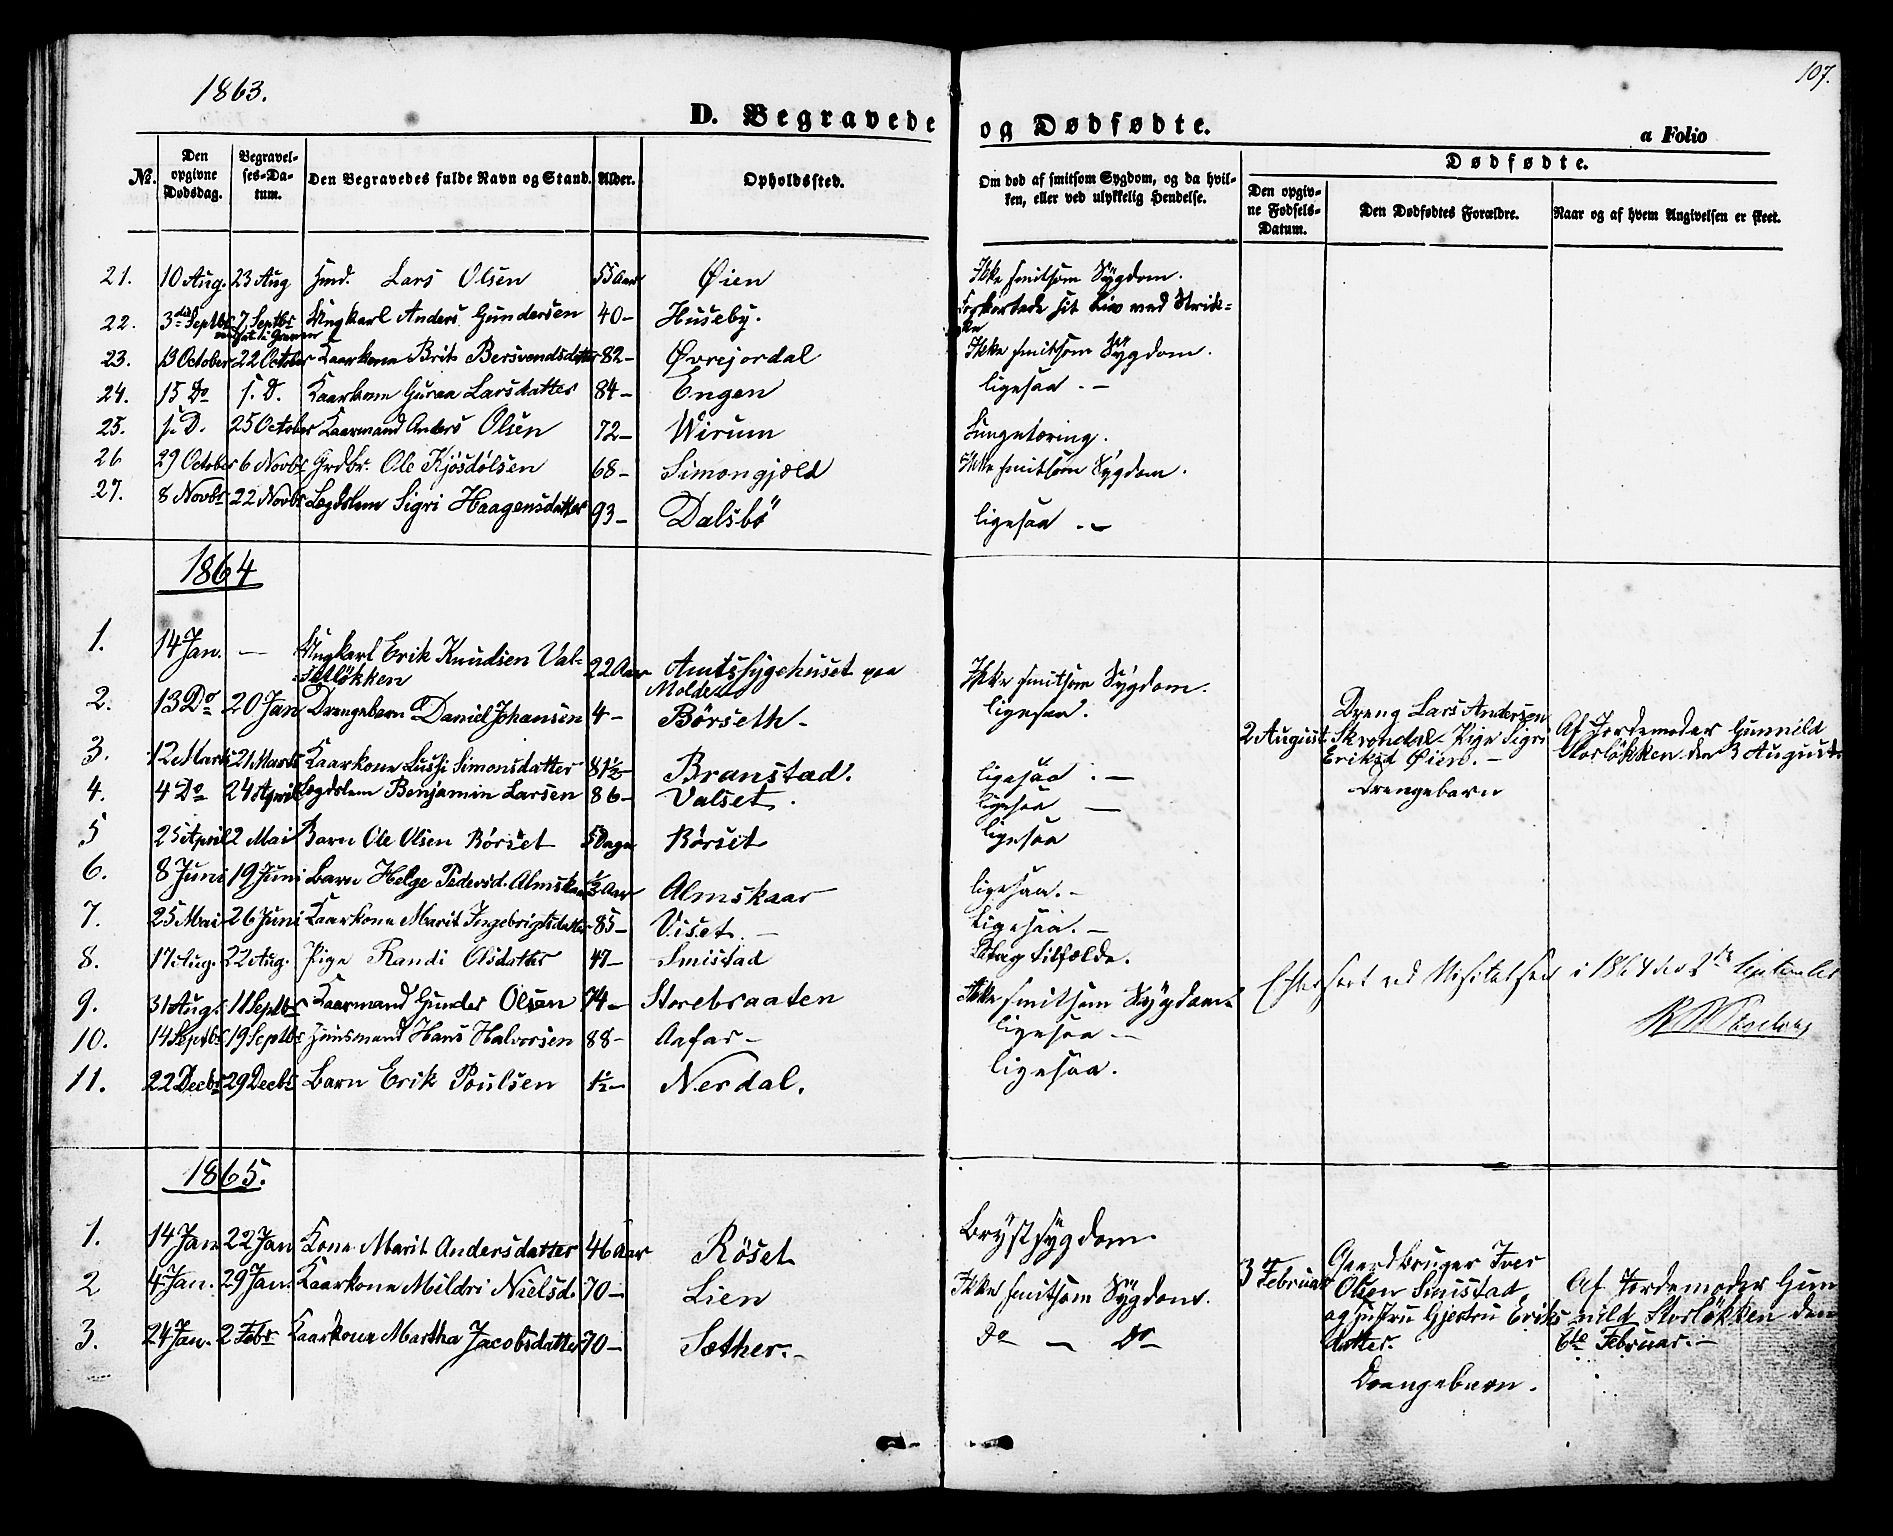 1863.
107.
D. Begravede og Dødfødte.
a Folio
No.
Den opgivne Dødsdag.
Begravelses-Datum.
Den Begravedes fulde Navn og Stand.
Alder.
Opholdssted.
Om død af smitsom Sygdom, og da hvilken, eller ved ulykkelig Hendelse.
Dødfødte.
Den opgivne Fødsels-Datum.
Den Dødfødtes Forældre.
Naar og af hvem Angivelsen er skeet.
21. 10 Aug. 23 Aug Lars Olsen 55 Aar Øien Ikke smitsom Sygdom.
22. 3die Septbr 7 Septbr Ungkarl Anders Gundersen 40 – Huseby. Forkortede sit Liv ved Strik-
ke
23. 13 October 22 October Kaarkone Brit Bersvendsdatter 82 – Øvrejordal Ikke smitsom Sygdom.
24. 15 Do s. D. Kaarkone Guraa Larsdatter 84 – Engen ligesaa . –
25. s. D. 25 October Kaarmand Anders Olsen 72 – Wirum Lungetæring.
26 29 October 6 Novbr Grdbr. Ole Kjøsdølsen 68 – Simongjeld Ikke smitsom Sygdom.
27. 8 Novbr 22 Novbr Legdslem Sigri Haagensdatter 93 – Dalsbö ligesaa . –
1864
1. 14 Jan. — Ungkarl Erik Knudsen Val-
setløkken 22 Aar Amtssygehuset paa
Molde Ikke smitsom Sygdom.
2. 13 Do 20 Jan Drengebarn Daniel Johansen 4 – Börseth – ligesaa.
3. 12 Marts 21 Marts Kaarkone Lussi Simonsdatter 81½ – Branstad. ligesaa . –
4. 4 Do 24 April Legdslem Benjamin Larsen 86 – Valset. ligesaa –
5 25 April 2 Mai Barn Ole Olsen Börset 5 Dage Börset ligesaa
6. 8 Juni 19 Juni Barn Helge Pedersd. Almskaar ½ Aar Almskaar ligesaa. –
7. 25 Mai 26 Juni Kaarkone Marit Ingebrigtsdatter 85 – Viset. – ligesaa. –
8. 17 Aug. 22 Aug. Pige Randi Olsdatter 47 – Smistad Slagtilfælde.
9. 31 Aug. 11 Septbr Kaarmand Gunder Olsen 74 – Storebraaten Ikke smitsom Sygdom.
10. 14 Septbr 19 Septbr Huusmand Hans Halvorsen 88 – Aafar – ligesaa –
11. 22 Decbr 29 Decbr Barn Erik Poulsen 1½ – Nerdal. ligesaa.
2 August
Dreng Lars Andersen
Skrondal. Pige Sigri
Eriksd Øien. –
Drengebarn
Af Jordemoder Gunnild
Storløkken den 3 August
Efterseet ved Visitatsen i 1864 den September
1865.
1. 14 Jan 22 Jan Kone Marit Andersdatter 46 Aar Röset Brystsygdom.
2 4 Jan. 29 Jan. Kaarkone Mildri Nielsd. 70 – Lien Ikke smitsom Sygdom.
3. 24 Jan. 2 Febr Kaarkone Martha Jacobsdatter 70 – Sæther. – Do — Do
3 Februar
Gaardbruger Iver
Olsen Smistad
og Hustru Gjertru Eriks
datter.
Drengebarn.
Af Jordemoder Gun
nild Storløkken den
6te Februar. –